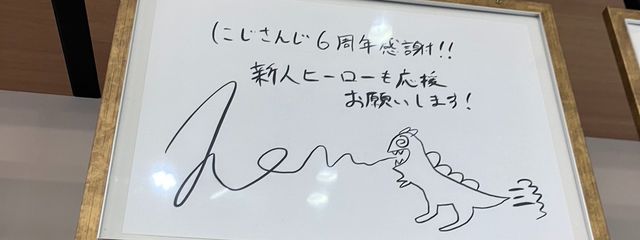 にじさんじ6周年感謝!!
新人ヒーローも応援
お願いします!
Len